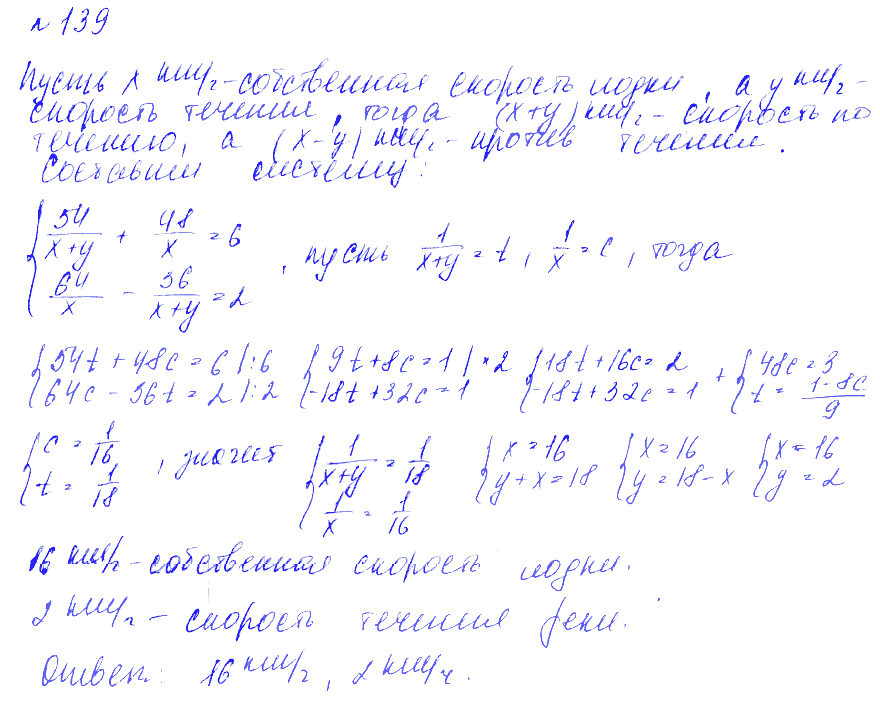 № 139
Пусть x км/ч - собственная скорость лодки, а y км/ч -
скорость течения, тогда (x+y) км/ч - скорость по
течению, а (x-y) км/ч - против течения.
Составим систему:
{ 54/(x+y) + 48/x = 6
{ 64/x - 36/(x+y) = 2 , пусть 1/(x+y) = t, 1/x = c, тогда
{ 54t + 48c = 6 |:6 { 9t + 8c = 1 | × 2 { 18t + 16c = 2 + { 48c = 3
{ 64c - 36t = 2 |:2 { -18t + 32c = 1 { -18t + 32c = 1 { t = (1-8c)/9
{ c = 1/16 , значит { 1/(x+y) = 1/18 { x = 16 { x = 16 { x = 16
{ t = 1/18 { 1/x = 1/16 { y + x = 18 { y = 18 - x { y = 2
16 км/ч - собственная скорость лодки.
2 км/ч - скорость течения реки.
Ответ: 16 км/ч, 2 км/ч.